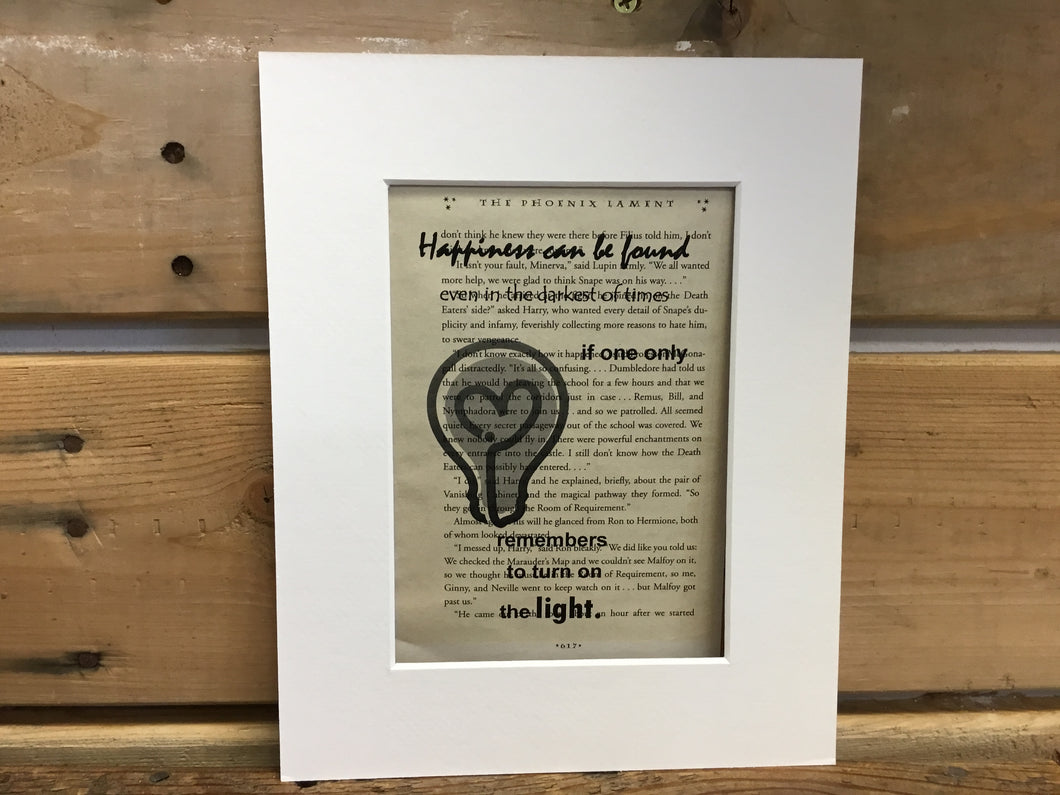 THE PHOENIX LAMENT
don't think he knew they were there before Filius told him, I don't
Happiness can be found
"It isn't your fault, Minerva," said Lupin firmly. "We all wanted
more help, we were glad to think Snape was on his way. . . ."
even in the darkest of times
the Death
Eaters' side?" asked Harry, who wanted every detail of Snape's du-
plicity and infamy, feverishly collecting more reasons to hate him,
to swear vengeance.
if one only
"I don't know exactly how it happened,
gall distractedly. "It's all so confusing. . . . Dumbledore had told us
that he would be leaving the school for a few hours and that we
were to patrol the corridors just in case . . . Remus, Bill, and
Nymphadora were to join us . . . and so we patrolled. All seemed
quiet. Every secret passageway out of the school was covered. We
knew nobody could fly in. There were powerful enchantments on
every entrance into the castle. I still don't know how the Death
Eaters can possibly have entered. . . ."
"I do," said Harry, and he explained, briefly, about the pair of
Vanishing Cabinets and the magical pathway they formed. "So
they got in through the Room of Requirement."
Almost against his will he glanced from Ron to Hermione, both
of whom looked devastated.
remembers
"I messed up, Harry," said Ron bleakly. "We did like you told us:
We checked the Marauder's Map and we couldn't see Malfoy on it,
to turn on
so we thought he must be in the Room of Requirement, so me,
Ginny, and Neville went to keep watch on it . . . but Malfoy got
past us."
the light.
"He came out of the room about an hour after we started
*617*